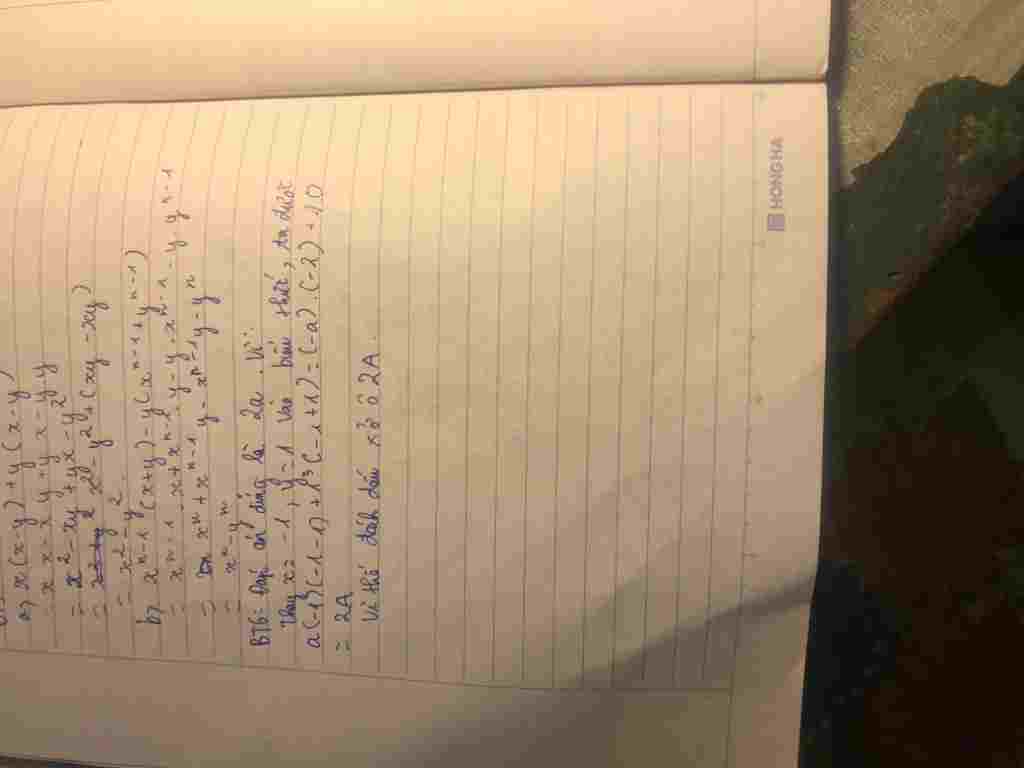 a) x(x-y)+y(x-y)
= x.x-x.y+y.x-y.y
= x²-xy+yx-y²
= x²-y²+(xy-xy)
= x²-y²
b) xⁿ⁻¹(x+y)-y(xⁿ⁻¹+yⁿ⁻¹)
= xⁿ⁻¹.x+xⁿ⁻¹.y-y.xⁿ⁻¹-y.yⁿ⁻¹
= xⁿ+xⁿ⁻¹y-xⁿ⁻¹y-yⁿ
= xⁿ-yⁿ
BT6: Đáp án đúng là 2a. Vì:
Thay x=-1, y=1 vào biểu thức, ta được
a(-1)(-1-1)+1³(-1+1)=(-a).(-2)+1.0
= 2A
Vì thế đánh dấu x ở ô 2A.
HONG HA